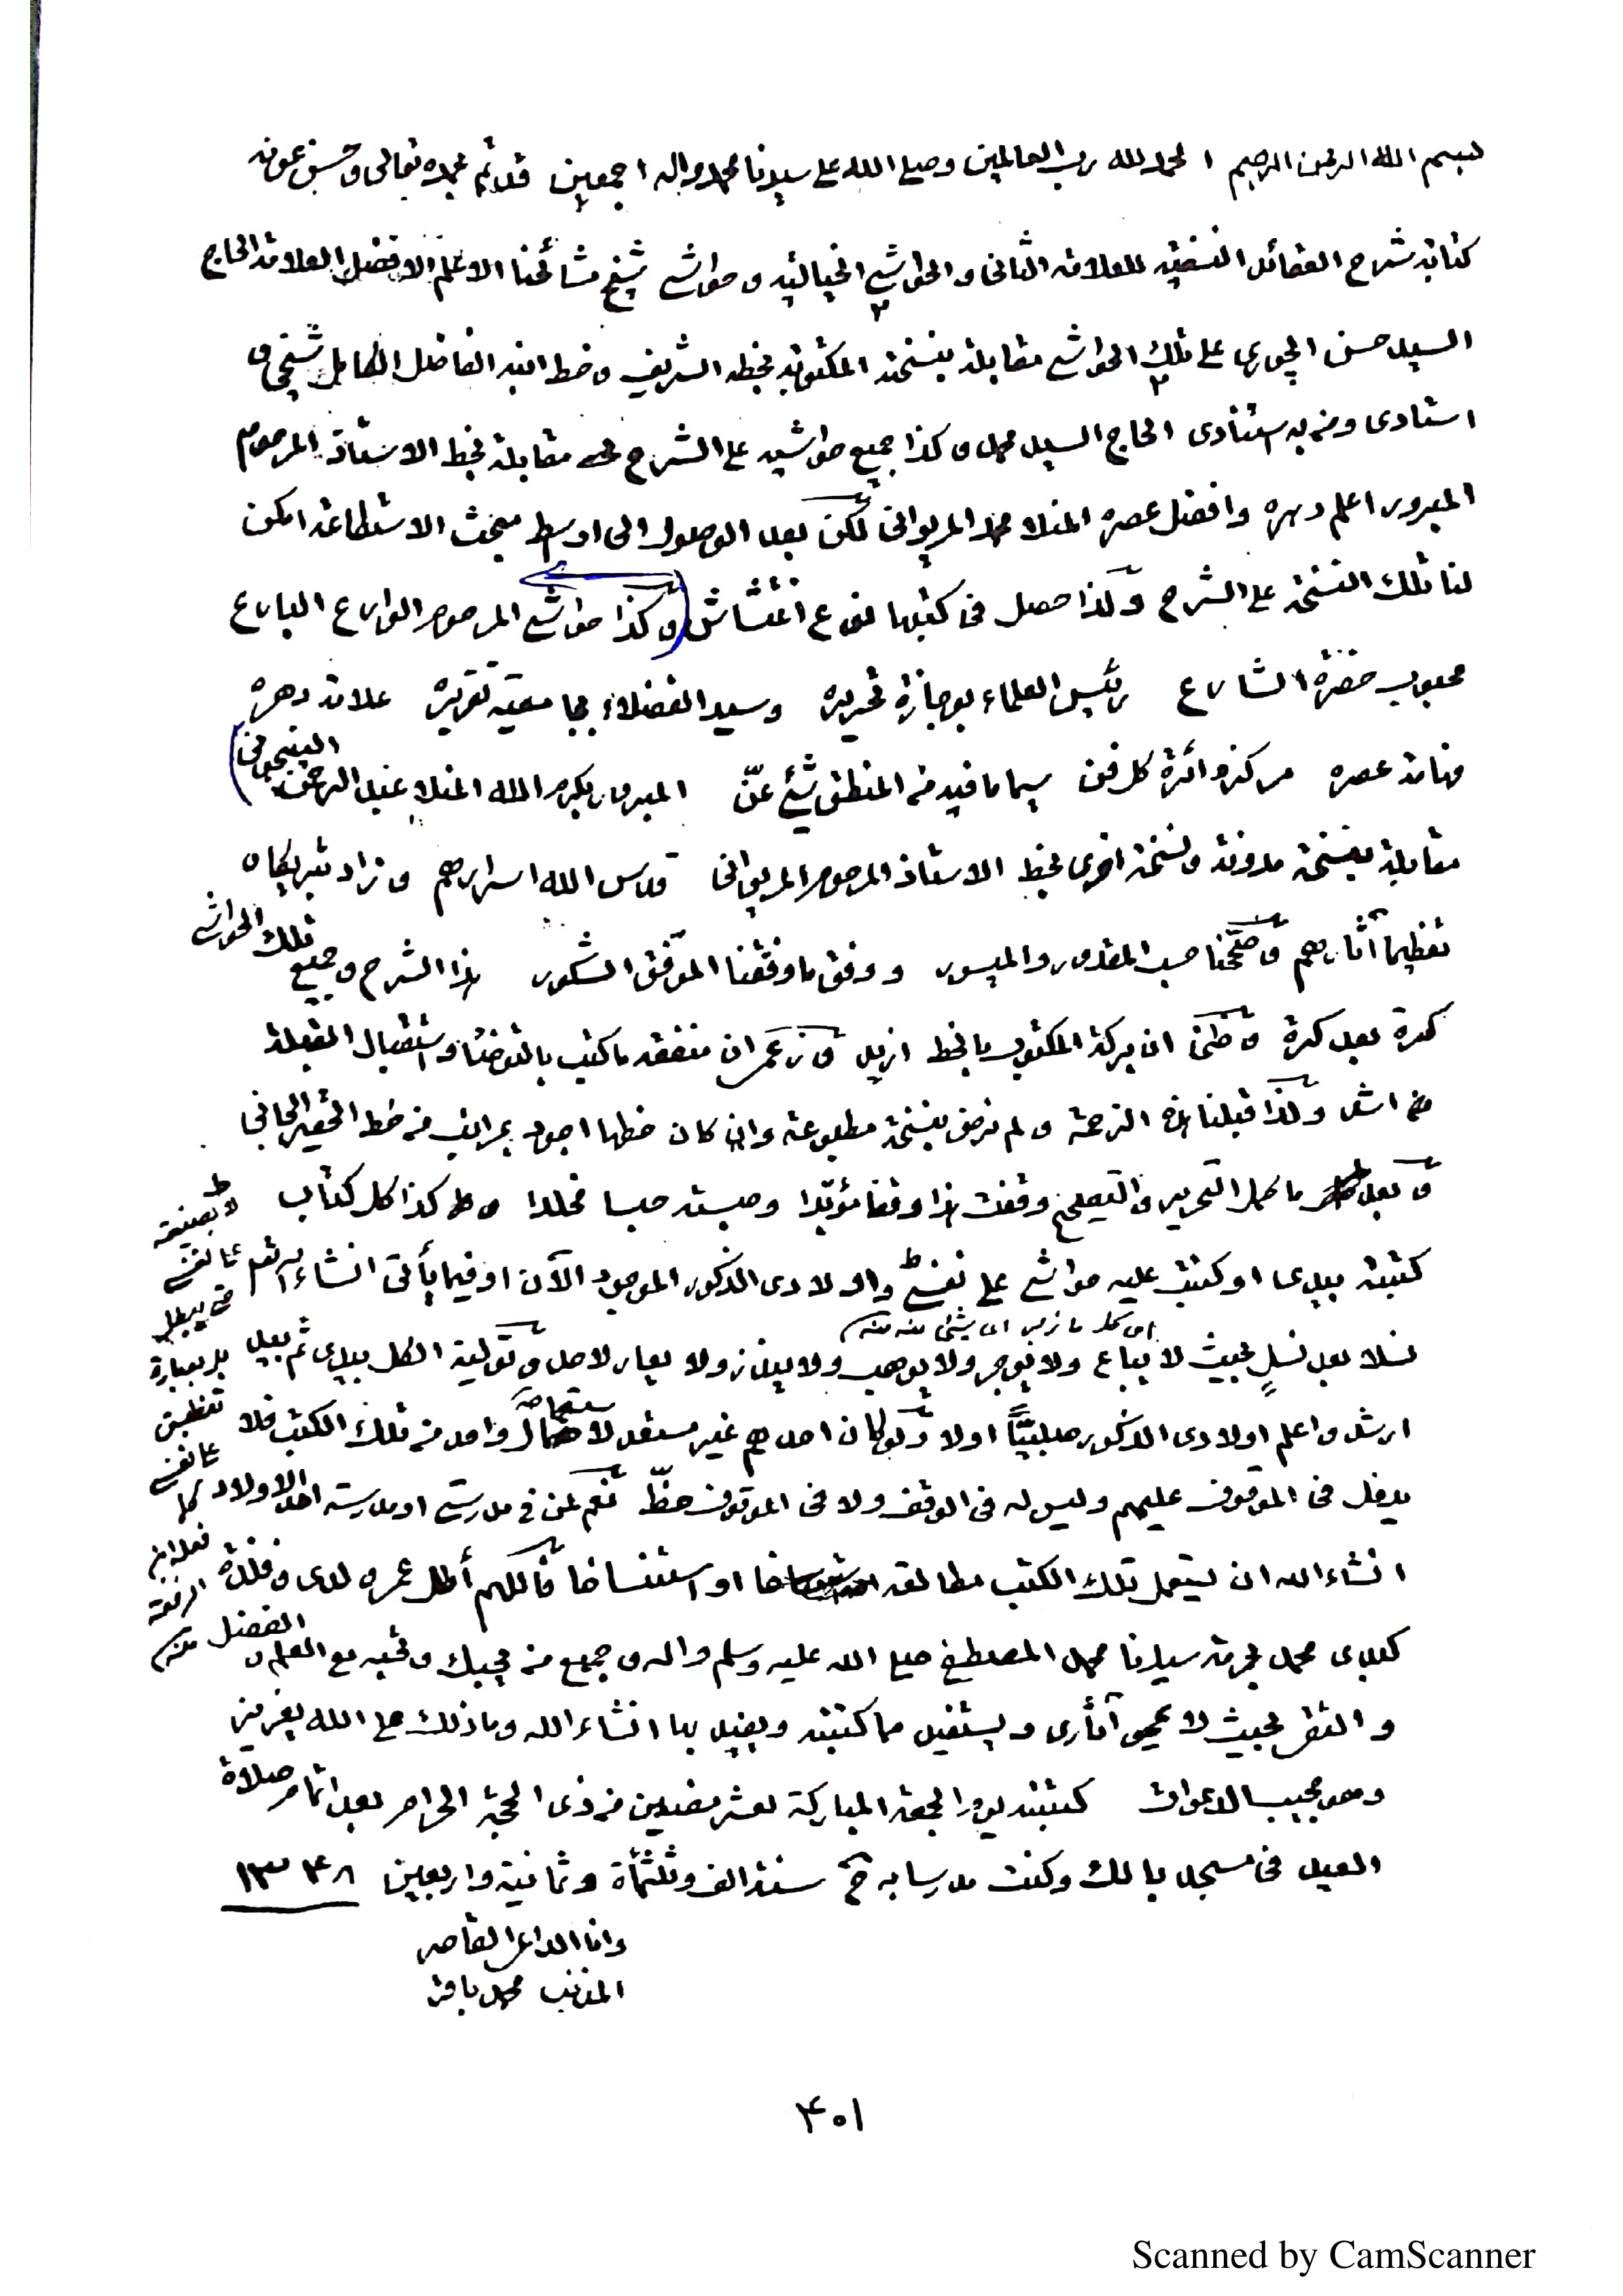 بسم الله الرحمن الرحيم الحمد لله رب العالمين وصلى الله على سيدنا محمد واله اجمعين قد تم بحمده تعالى وحسن عونه
كتابة شرح العقائد النسفية للعلامة الثانى والحواشي الخيالية وحواشي شيخ مشائخنا الاعلم الافضل العلامة الحاج
السيد حسن الچورى على تلك الحواشي مقابلة بنسخة المكتوبة بخطه الشريف وخط ابنه الفاضل الكامل شيخى و
استادى ومن به استنادى الحاج السيد محمد وكذا جميع حواشيه على الشرح مقابلة بخط الاستاذ المرحوم
المبرور اعلم دهره وافضل عصره المنلا محمد المريوانى لكن بعد الوصول الى اوسط مبحث الاستطاعة امكن
لنا تلك النسخة على الشرح ولذا حصل فى كتبها نوع اغتشاش (وكذا حواشي المرحوم الوارع البارع
محبوب حضرة الشارع رئيس العلماء بوجازة تحريره وسيد الفضلاء بجامعية تقريره علامة دهره
فهامة عصره مركز دائرة كل فن سيما ما فيه من المنطق شئ عنّ المبرور بكرم الله المنلا عبد الرحمن الپينجوينى)
مقابلة بنسخة مدونة ونسخة اخرى بخط الاستاذ المرحوم المريوانى قدس الله اسرارهم وزاد تبريكا و
تعظيما آثارهم وصححنا حسب المقدور والميسور ووفق ما وفقنا الموفق الشكور هذا الشرح وجميع تلك الحواشى
كرة بعد كرة وظنى ان بركة المكتوب بالخط ازيد وزعمى ان منفعة ما كتب بالتوضئ واستقبال القبلة
اشد ولذا قبلنا هذه الزحمة ولم نرض بنسخة مطبوعة وان كان خطها اجود بمراتب من خط الحقير الجانى
وبعد ما كمل التحرير والتصحيح وقفت هذا وقفا مؤبدا وحبسته حبسا مخلدا وكذا كل كتاب
كتبته بيدى او كتبت عليه حواشي على نفسي واولادى الذكور الموجود الآن او فيما يأتى انشاء الله تعالى
نسلا بعد نسل بحيث لا يباع ولا يوجر ولا يوهب ولا يعار لاحد وتولية الكل بيدى ثم بيد
ارشد واعلم اولادى الذكور صلبيًّا اولا ولو كان احدهم غير مستعد واحد من تلك الكتب فلا
يدخل فى الموقوف عليهم وليس له فى الوقف ولا فى الموقوف حظّ نعم لمن فى مدرستى او مدرسة احد الاولاد
انشاء الله ان يستعمل تلك الكتب مطالعة او استنساخا فاللهم أطل عمر ولدى
محمد بحرمة سيدنا محمد المصطفى صلى الله عليه وسلم واله وجميع من يحبك وتحبه مع العلم و
بحيث لا يمحى آثارى ويستفيد مما كتبته ويفيد بها انشاء الله وما ذلك على الله بعزيز
وهو مجيب الدعوات كتبته يوم الجمعة المباركة لعشر مضين من ذى الحجة الحرام بعد اتمام صلاة
العيد فى مسجد بالك وكنت مدرسا به سنة الف وثلثمأة وثمانية واربعين ١٣٤٨
وانا الداعى القاصر
المذنب محمد باقر
٤٠١
Scanned by CamScanner